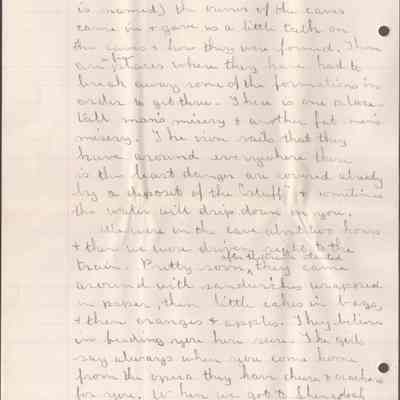 is named) the owner of the caves
came in + gave us a little talk on
the caves + how they were formed. There
are places where they have had to
break away some of the formations in
order to get there. There is one place
tall man's misery + another fat man's
misery. The iron rails that they
have around everywhere there
is the least danger are covered already
by a deposit of the "stuff" + sometimes
the water will drip down on you.
We were in the cave about two hours
+ then we were driven right to the
train. Pretty soon, after the train started they came
around with sandwiches wrapped
in paper, then little cakes in bags,
+ then oranges + apples. They believe
in feeding you here sure. The girls
say always when you come home
from the opera they have cheese + crackers
for you. When we got to Shenadoah